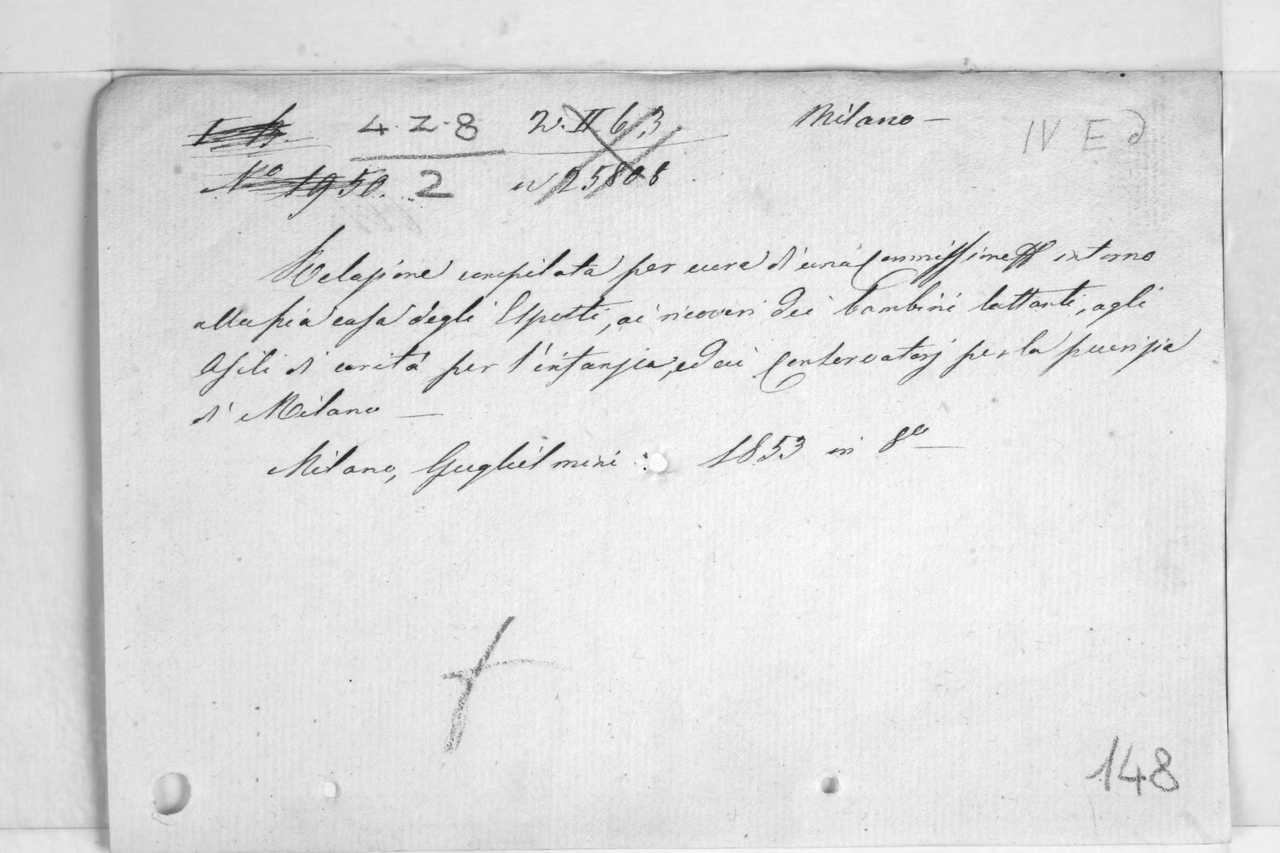 4-Z-8 2. II 6, 3 Milano — IV E d
No 1950. 2 N 25808
Relazione compilata per cura d'una Commissione intorno
alla pia casa degli Esposti, ai ricoveri dei bambini lattanti, agli
Asili di carità per l'infanzia, ed ai Conservatorj per la puerizia
di Milano —
Milano, Guglielmini : 1853 in 8o —
148